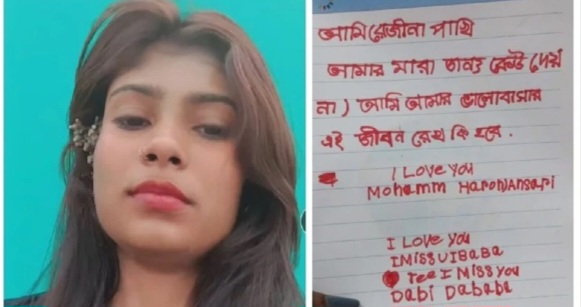 আমি রোজীনা পাখি
আমার মারা জন্য কেউ দেয়
না) আমি আমার ভালোবাসার
এই জীবন রেখ কি হবে.
I Love You
Mohamm HaronAnsari
I Love You
I MISS U I BABA
Tee I MISS YOU
Dabi Dababa